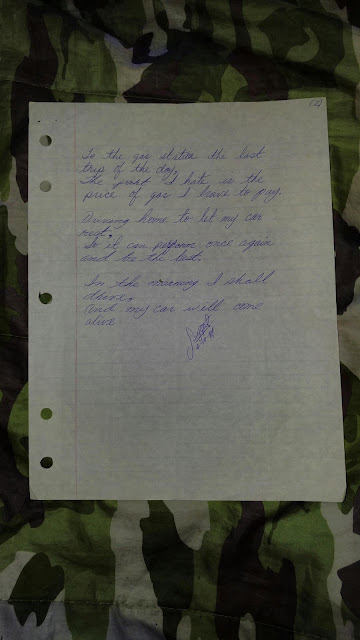 (2)
To the gas station the last
trip of the day,
The part I hate is the
price of gas I have to pay.
Driving home to let my car
rest.
So it can perform once again
and be the best.
In the morning I shall
drive,
And my car will come
alive